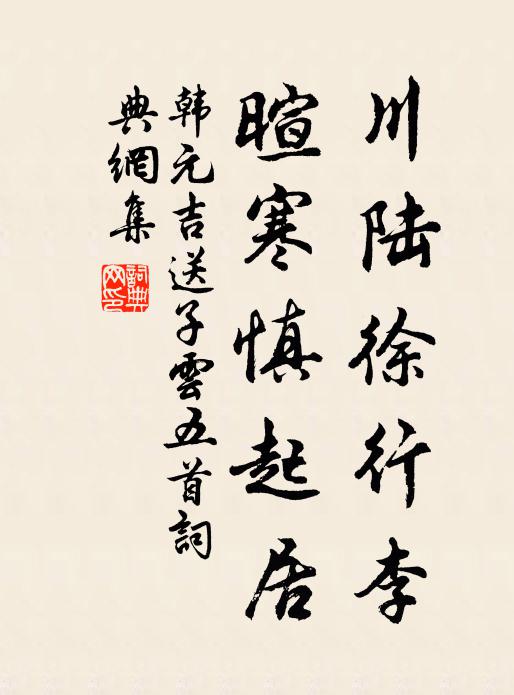 川陆徐行李
暄寒慎起居
韩元吉送子雲五首詞
典網集
詞典网印